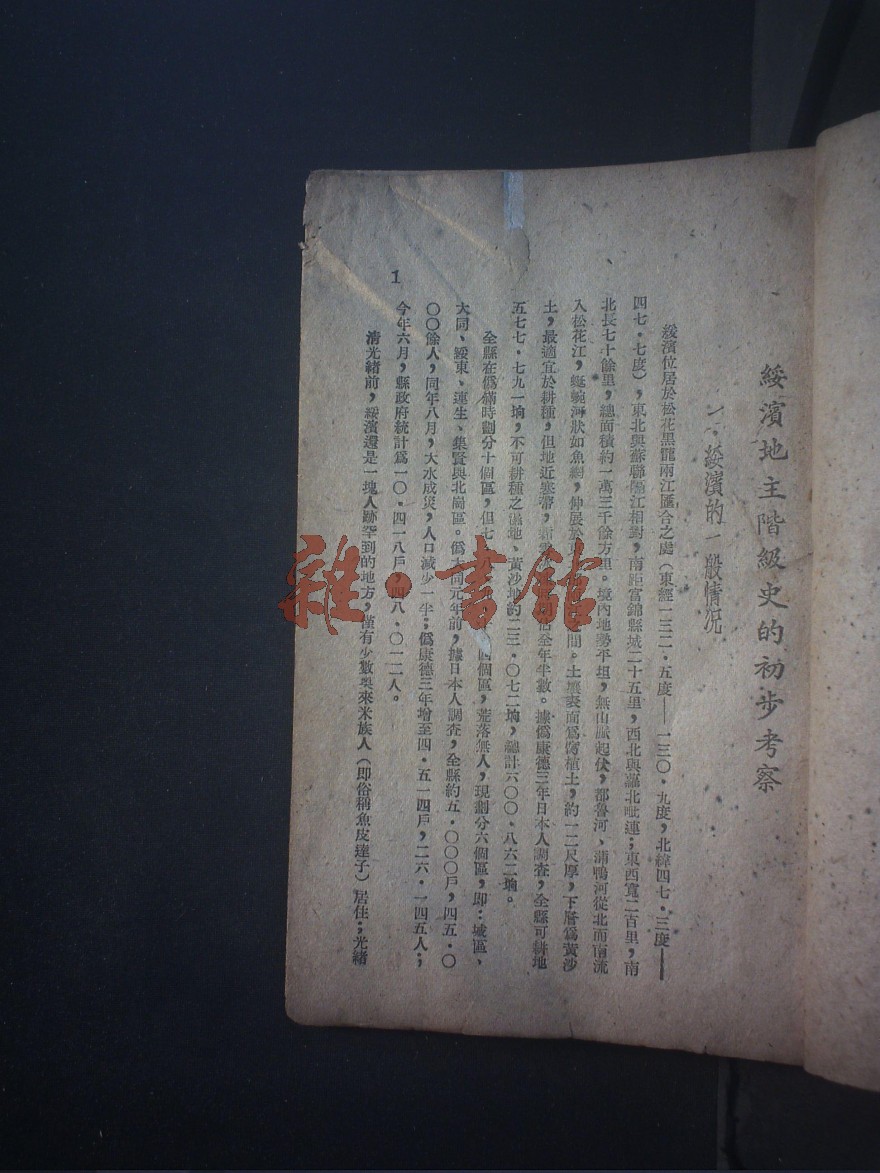 綏濱地主階級史的初步考察
一、綏濱的一般情況
綏濱位居於松花黑龍兩江匯合之處(東經一三二・五度——一三〇・九度,北緯四七・三度——
四七・七度),東北與蘇聯隔江相對,南距富錦縣城二十五里,西北與蘿北毗連;東西寬二百里,南
北長七十餘里,總面積約一萬三千餘方里。境內地勢平坦,無山脈起伏,都魯河、蒲鴨河從北而南流
入松花江,蜿蜒河狀如魚網,伸展於 間。土壤表面為腐植土,約一二尺厚,下層為黃沙
土,最適宜於耕種,但地近寒帶, 佔全年半數。據偽康德三年日本人調查,全縣可耕地
五七七・七九一垧,不可耕種之濕地、黃沙地約二三・〇七二垧,總計六〇〇・八六二垧。
全縣在偽滿時劃分十個區,但七 個區,荒落無人,現劃分六個區,即:城區、
大同、綏東、連生、集賢與北崗區。偽大同元年前,據日本人調查,全縣約五・〇〇〇戶,四五・〇
〇〇餘人,同年八月,大水成災,人口減少一半;偽康德三年增至四・五一四戶,二六・一四五人;
今年六月,縣政府統計為一〇・四一八戶,四八・〇一二人。
清光緒前,綏濱還是一塊人跡罕到的地方,僅有少數奧來米族人(即俗稱魚皮達子)居住;光緒
1
雜・書館